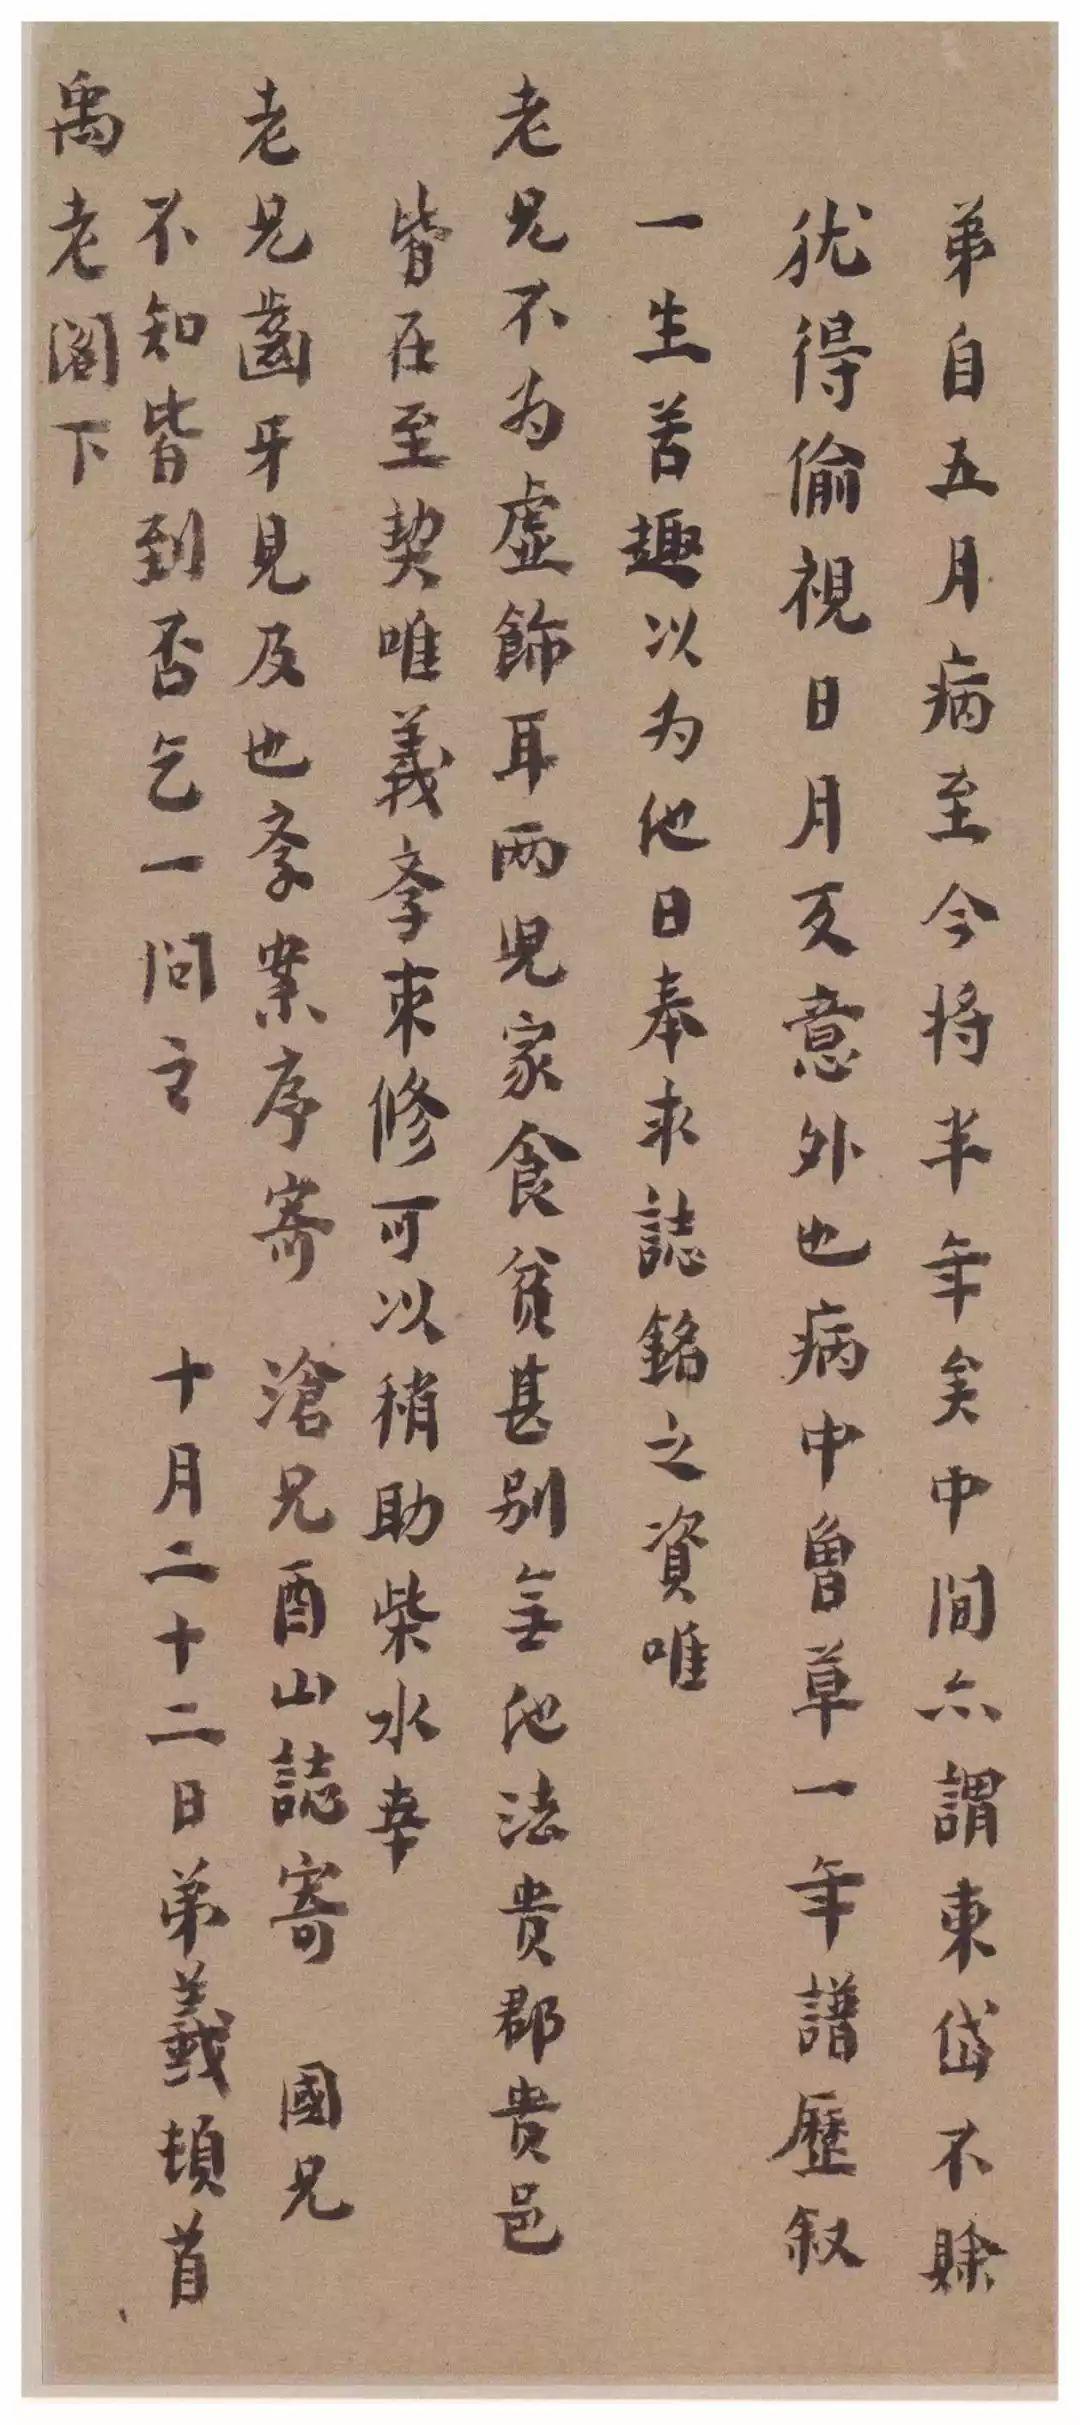 弟自五月病至今将半年矣中間亦謂東岱不賖
犹得偷視日月友意外也病中曽草一年譜歷叙
一生苦趣以为他日奉求誌銘之資唯
老兄不为虚飾耳兩児家食貧甚別無他法贵郡贵邑
皆在至契唯義孝束修可以稍助柴水幸
老兄齒牙見及也孝案序寄 滄兄酉山誌寄 國兄
不知皆到否乞一問之 十月二十二日弟義頓首
禹老阁下